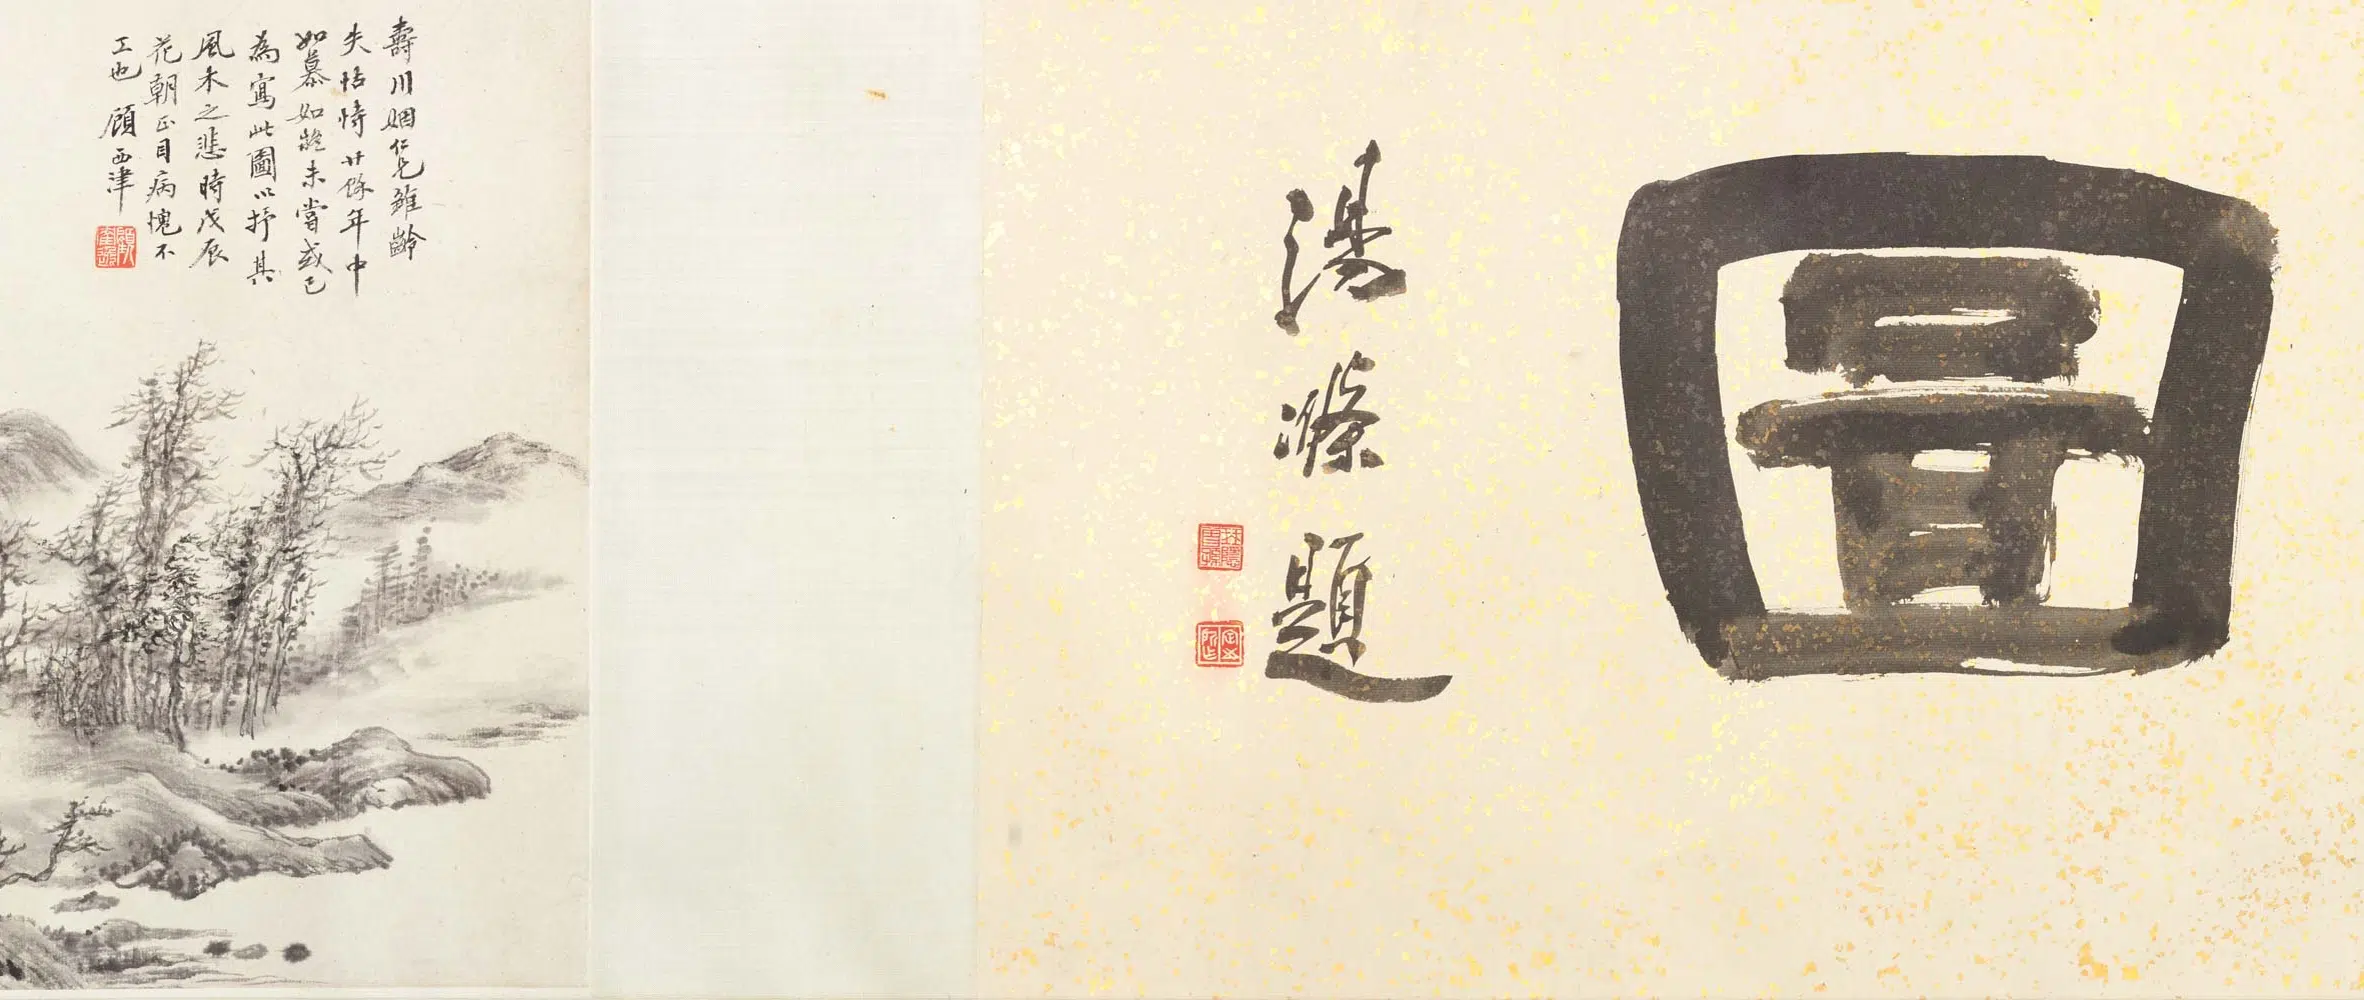 圖
湯滌題
琴隱曾孫
壽川姻仁兄稚齡
失怙恃廿餘年中
如慕如疑未嘗或已
為寫此圖以抒其
風木之悲時戊辰
花朝正目病愧不
工也 顧西津
顧隺逸